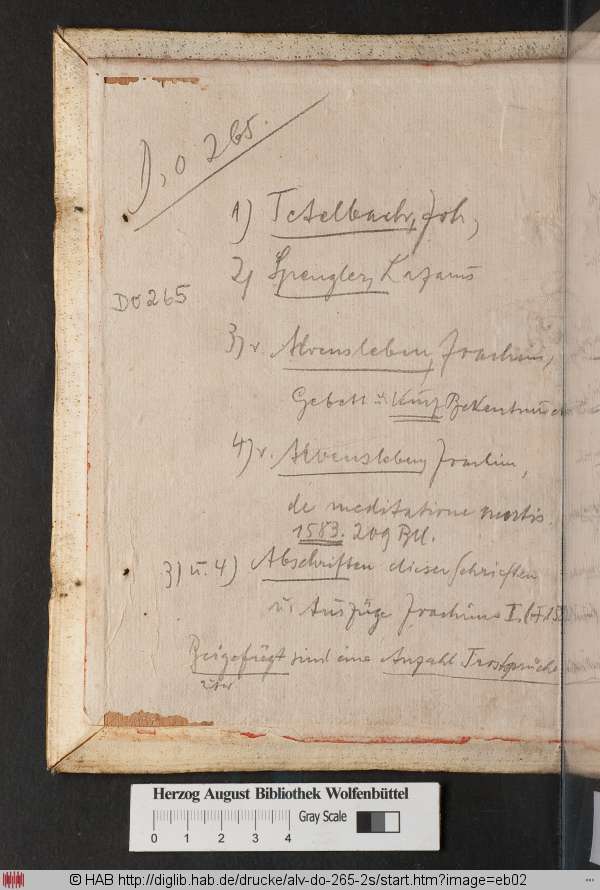 Do 265.
1) Tetelbach, Joh,
2) Spengler, Lazarus
Do 265
3) v. Alvensleben, Joachim,
Gebett u. Kurz Bekentnus
4) v. Alvensleben, Joachim,
de meditatione mortis.
1583. 209 Bll.
3) u. 4) Abschriften dieser Schriften
u. Auszüge Joachims I. (+ 15
Beigefügt sind eine Anzahl Trostsprüche
Herzog August Bibliothek Wolfenbüttel
Gray Scale
0 1 2 3 4
© HAB http://diglib.hab.de/drucke/alv-do-265-2s/start.htm?image=eb02